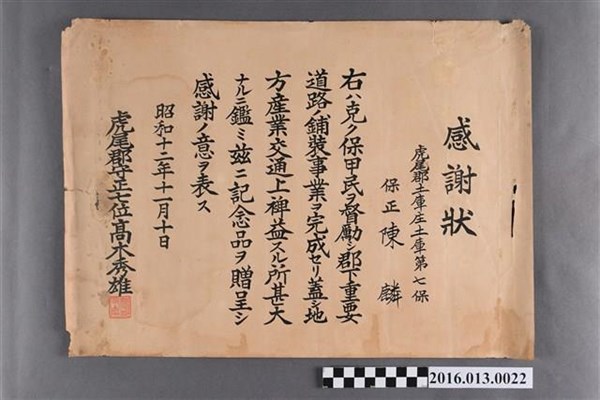 感謝狀
虎尾郡土庫庄土庫第七保
保正 陳麟
右ハ克ク保甲民ヲ督勵シ郡下重要
道路ノ鋪裝事業ヲ完成セリ蓋シ地
方産業交通上裨益スル所甚大
ナルニ鑑ミ茲ニ記念品ヲ贈呈シ
感謝ノ意ヲ表ス
昭和十二年十一月十日
虎尾郡守正七位高木秀雄
2016.013.0022